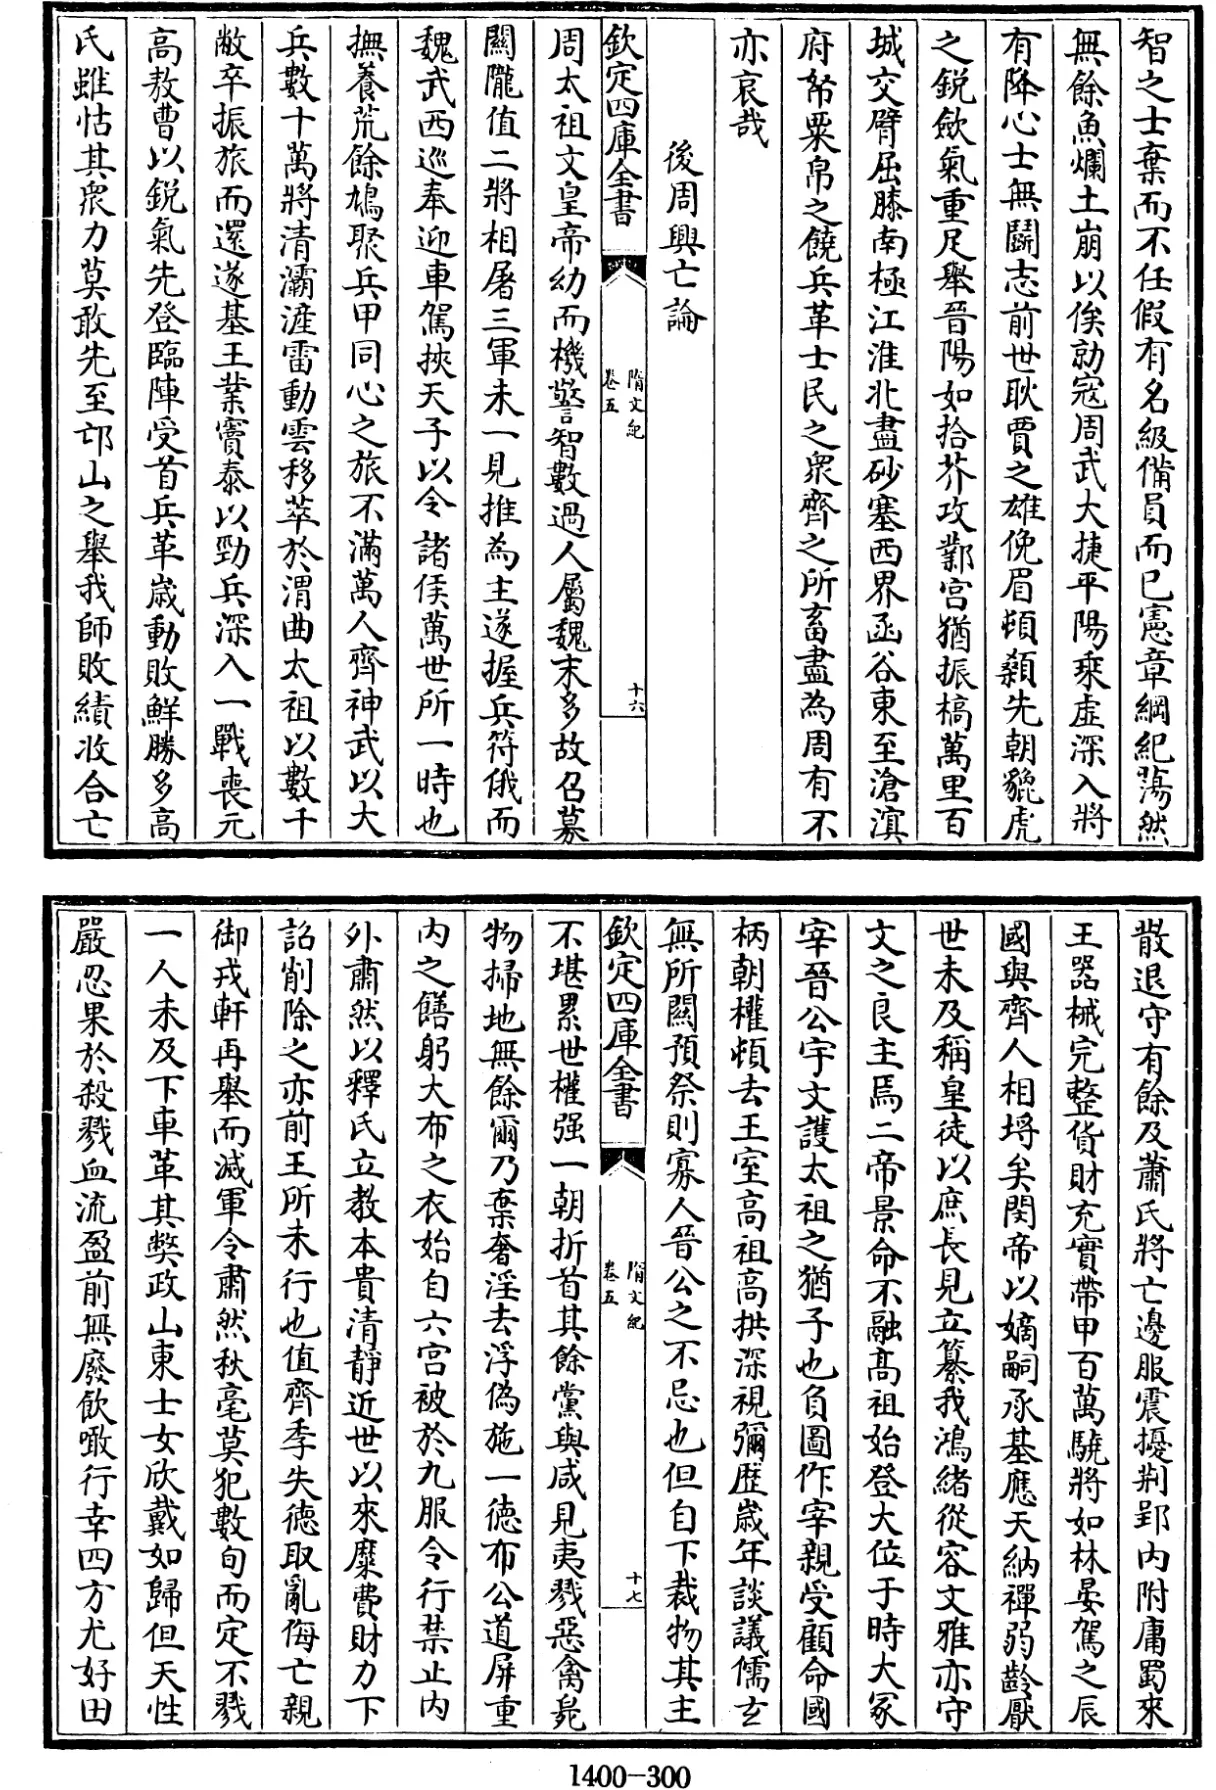 智之士棄而不任假有名級備員而已憲章綱紀蕩然
無餘魚爛土崩以俟勍寇周武大捷平陽乘虛深入將
有降心士無鬬志前世耿賈之雄俛眉頓顙先朝貙虎
之鋭歛氣重足舉晉陽如拾芥攻鄴宫猶振槁萬里百
城交臂屈膝南極江淮北盡砂塞西界函谷東至滄溟
府帑粟帛之饒兵革士民之衆齊之所畜盡為周有不
亦哀哉
後周興亡論
欽定四庫全書
隋文紀
卷五
十六
周太祖文皇帝幼而機警智數過人屬魏末多故召募
關隴值二將相屠三軍未一見推為主遂握兵符俄而
魏武西巡奉迎車駕挾天子以令諸侯萬世所一時也
撫養荒餘鳩聚兵甲同心之旅不滿萬人齊神武以大
兵數十萬將清灞滻雷動雲移萃於渭曲太祖以數千
敝卒振旅而還遂基王業竇泰以勁兵深入一戰喪元
高敖曹以鋭氣先登臨陣受首兵革歳動敗鮮勝多高
氏雖怙其衆力莫敢先至邙山之舉我師敗績收合亡
散退守有餘及蕭氏將亡邊服震擾荆郢内附庸蜀來
王器械完整貨財充實帶甲百萬驍將如林晏駕之辰
國與齊人相埒矣閔帝以嫡嗣承基應天納禪弱齡厭
世未及稱皇徒以庶長見立纂我鴻緒從容文雅亦守
文之良主焉二帝景命不融髙祖始登大位于時大冢
宰晉公宇文護太祖之猶子也負圖作宰親受顧命國
柄朝權頓去王室高祖高拱深視彌歴歳年談議儒玄
無所關預祭則寡人晉公之不忌也但自下裁物其主
欽定四庫全書
隋文紀
卷五
十七
不堪累世權强一朝折首其餘黨與咸見夷戮惡禽臰
物掃地無餘爾乃棄奢淫去浮偽施一徳布公道屏重
内之饍躬大布之衣始自六宫被於九服令行禁止内
外肅然以釋氏立教本貴清靜近世以來糜費財力下
詔削除之亦前王所未行也值齊季失徳取亂侮亡親
御戎軒再舉而滅軍令肅然秋毫莫犯數旬而定不戮
一人未及下車革其獘政山東士女欣戴如歸但天性
嚴忍果於殺戮血流盈前無廢飲噉行幸四方尤好田
1400-300